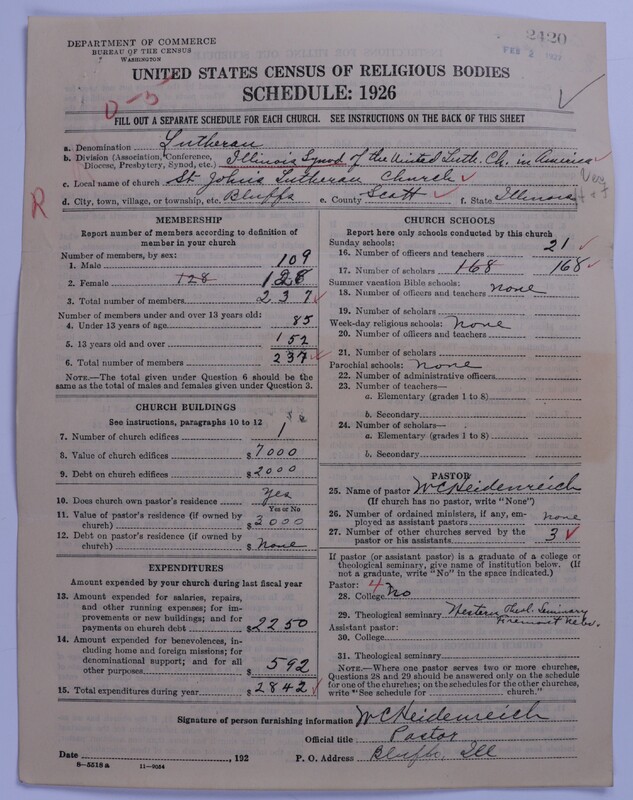 DEPARTMENT OF COMMERCE
BUREAU OF THE CENSUS
WASHINGTON
2420
FEB 2 1927
UNITED STATES CENSUS OF RELIGIOUS BODIES
SCHEDULE: 1926
D-5
FILL OUT A SEPARATE SCHEDULE FOR EACH CHURCH. SEE INSTRUCTIONS ON THE BACK OF THIS SHEET
a. Denomination Lutheran
b. Division (Association, Conference, Diocese, Presbytery, Synod, etc.) Illinois Synod of the United Luth. Ch. in America
c. Local name of church St Johns Lutheran Church
d. City, town, village, or township, etc. Bluffs e. County Scott f. State Illinois
R
MEMBERSHIP
Report number of members according to definition of
member in your church
Number of members, by sex:
1. Male 109
2. Female 128 128
3. Total number of members 237
Number of members under and over 13 years old:
4. Under 13 years of age 85
5. 13 years old and over 152
6. Total number of members 237
NOTE.—The total given under Question 6 should be the
same as the total of males and females given under Question 3.
CHURCH BUILDINGS
See instructions, paragraphs 10 to 12
7. Number of church edifices 1
8. Value of church edifices $7000
9. Debt on church edifices $2000
10. Does church own pastor's residence yes
Yes or No
11. Value of pastor's residence (if owned by
church) $3000
12. Debt on pastor's residence (if owned by
church) $None
EXPENDITURES
Amount expended by your church during last fiscal year
13. Amount expended for salaries, repairs,
and other running expenses; for im-
provements or new buildings; and for
payments on church debt $2250
14. Amount expended for benevolences, in-
cluding home and foreign missions; for
denominational support; and for all
other purposes $592
15. Total expenditures during year $2842
CHURCH SCHOOLS
Report here only schools conducted by this church
Sunday schools:
16. Number of officers and teachers 21
17. Number of scholars 168 168
Summer vacation Bible schools:
18. Number of officers and teachers none
19. Number of scholars
Week-day religious schools: None
20. Number of officers and teachers
21. Number of scholars
Parochial schools: none
22. Number of administrative officers
23. Number of teachers—
a. Elementary (grades 1 to 8)
b. Secondary
24. Number of scholars—
a. Elementary (grades 1 to 8)
b. Secondary
PASTOR
25. Name of pastor W C Heidenreich
(If church has no pastor, write "None")
26. Number of ordained ministers, if any, em-
ployed as assistant pastors none
27. Number of other churches served by the
pastor or his assistants 3
If pastor (or assistant pastor) is a graduate of a college or
theological seminary, give name of institution below. (If
not a graduate, write "No" in the space indicated.)
Pastor: 4
28. College No
29. Theological seminary Western Theol. Seminary
Fremont Nebr.
Assistant pastor:
30. College
31. Theological seminary
NOTE.—Where one pastor serves two or more churches,
Questions 28 and 29 should be answered only on the schedule
for one of the churches; on the schedules for the other churches,
write "See schedule for church."
Signature of person furnishing information W C Heidenreich
Official title Pastor
Date , 192 P. O. Address Bluffs, Ill
8-5518 a 11-9054